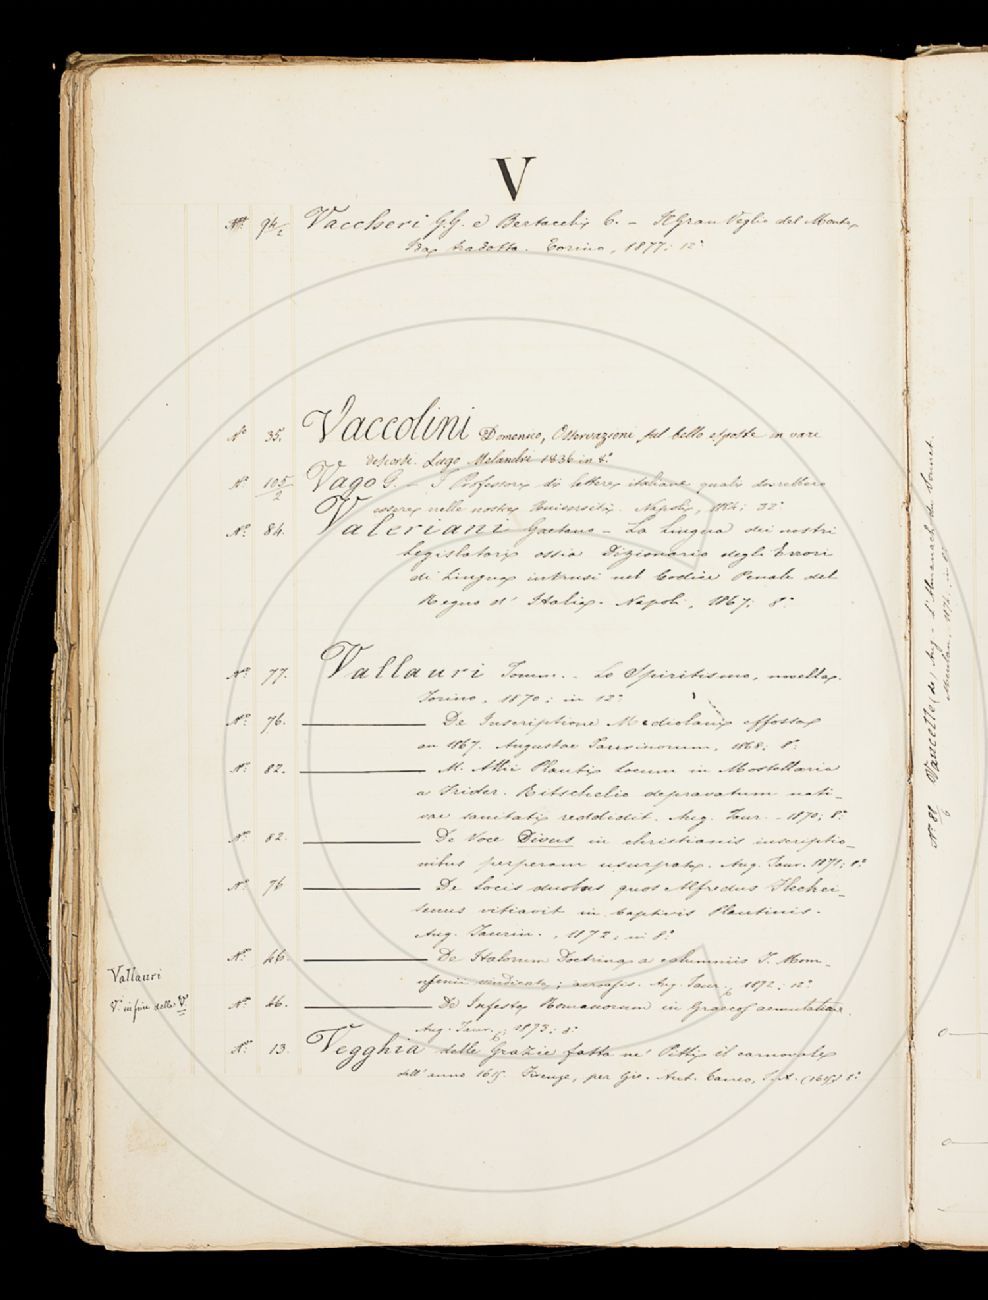 V
N° 94/2 Vaccheri G.G. e Bertacchi C. - Il Gran Veglio del Monte
tradotta. Torino, 1877; 12°
N° 35. Vaccolini Domenico, Osservazione sul bello esposte in varie
Lugo Melandri 1836 in 8°
N° 105/2 Vago G. - I Professori di lettere italiane quali dovrebbero
essere nelle nostre Università. Napoli,
N° 84. Valeriani Gaetano - La Lingua dei nostri
Legislatori ossia Dizionario degli Errori
di Lingua intrusi nel Codice Penale del
Regno d' Italia. Napoli, 1867; 8°
N° 77. Vallauri Tomm. - Lo Spiritismo, novella.
Torino, 1870; in 12°
N° 76. De Inscriptione Mediolani effossa
an 1867. Augustae Taurinorum, 1868; 8°
N° 82. M. Attii Plauti Locum in Mostellaria
a Frider. Ritschelio depravatum nati-
vae sanitati reddidit. Aug. Taur. - 1870; 8°
N° 82. De Voce Divus in christianis inscriptio-
nibus perperam usurpata. Aug. Taur. 1871; 8°
N° 76 De Locis duobus quos Alfredus Fleckei-
senus vitiavit in Captivis Plautinis.
Aug. Taurin., 1872; in 8°
N° 46. De Italorum Doctrina a calumniis T. Mom-
msenii vindicata; Aug. Taur., 1872; 12°
N° 46. De Infesta Romanorum in Graecos aemulatione.
Aug. Taur., 1873; 8°
Vallauri
V. in fine della V
N° 13. Vegghia delle Grazie fatta ne' Pitti il carnovale
dell' anno 1615. Firenze, per Gio. Ant. Caneo, (1615) 8°
N° 81/6 Vaucelle (de) Aug - L'Almanach du Sonnet.
in 8°